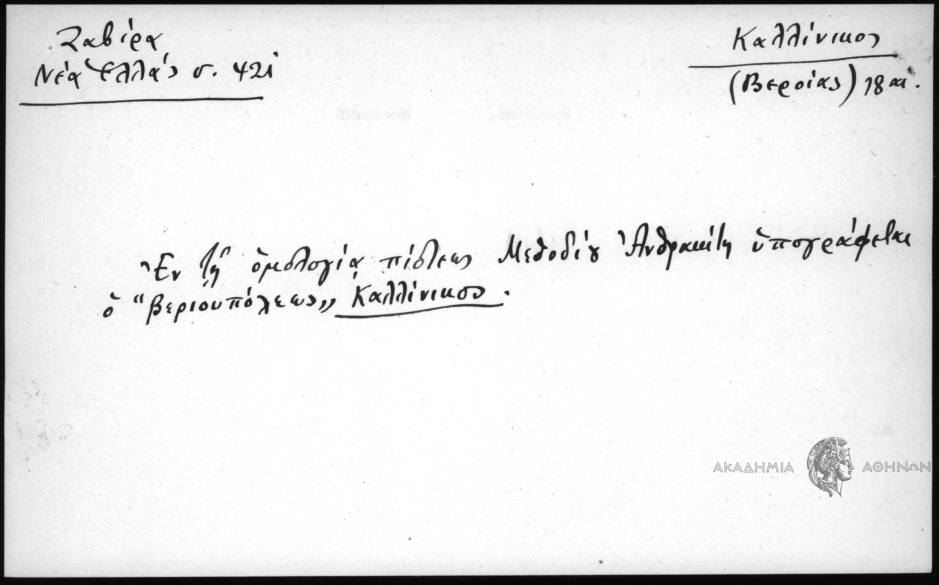 Ζαβίρα
Νέα Ἑλλάς σ. 421
Καλλίνικος
(Βεροίας) 18 αἰ.
Ἐν τῇ ὁμολογίᾳ πίστεως Μεθοδίου Ἀνθρακίτη ὑπογράφεται
ὁ "Βεριουπόλεως,, Καλλίνικος.
ΑΚΑΔΗΜΙΑ ΑΘΗΝΩΝ